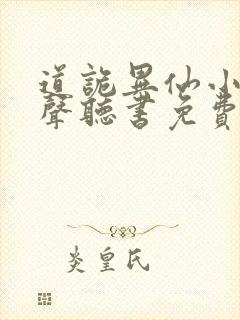 道詭異仙小
聲聽書免費
炎皇氏